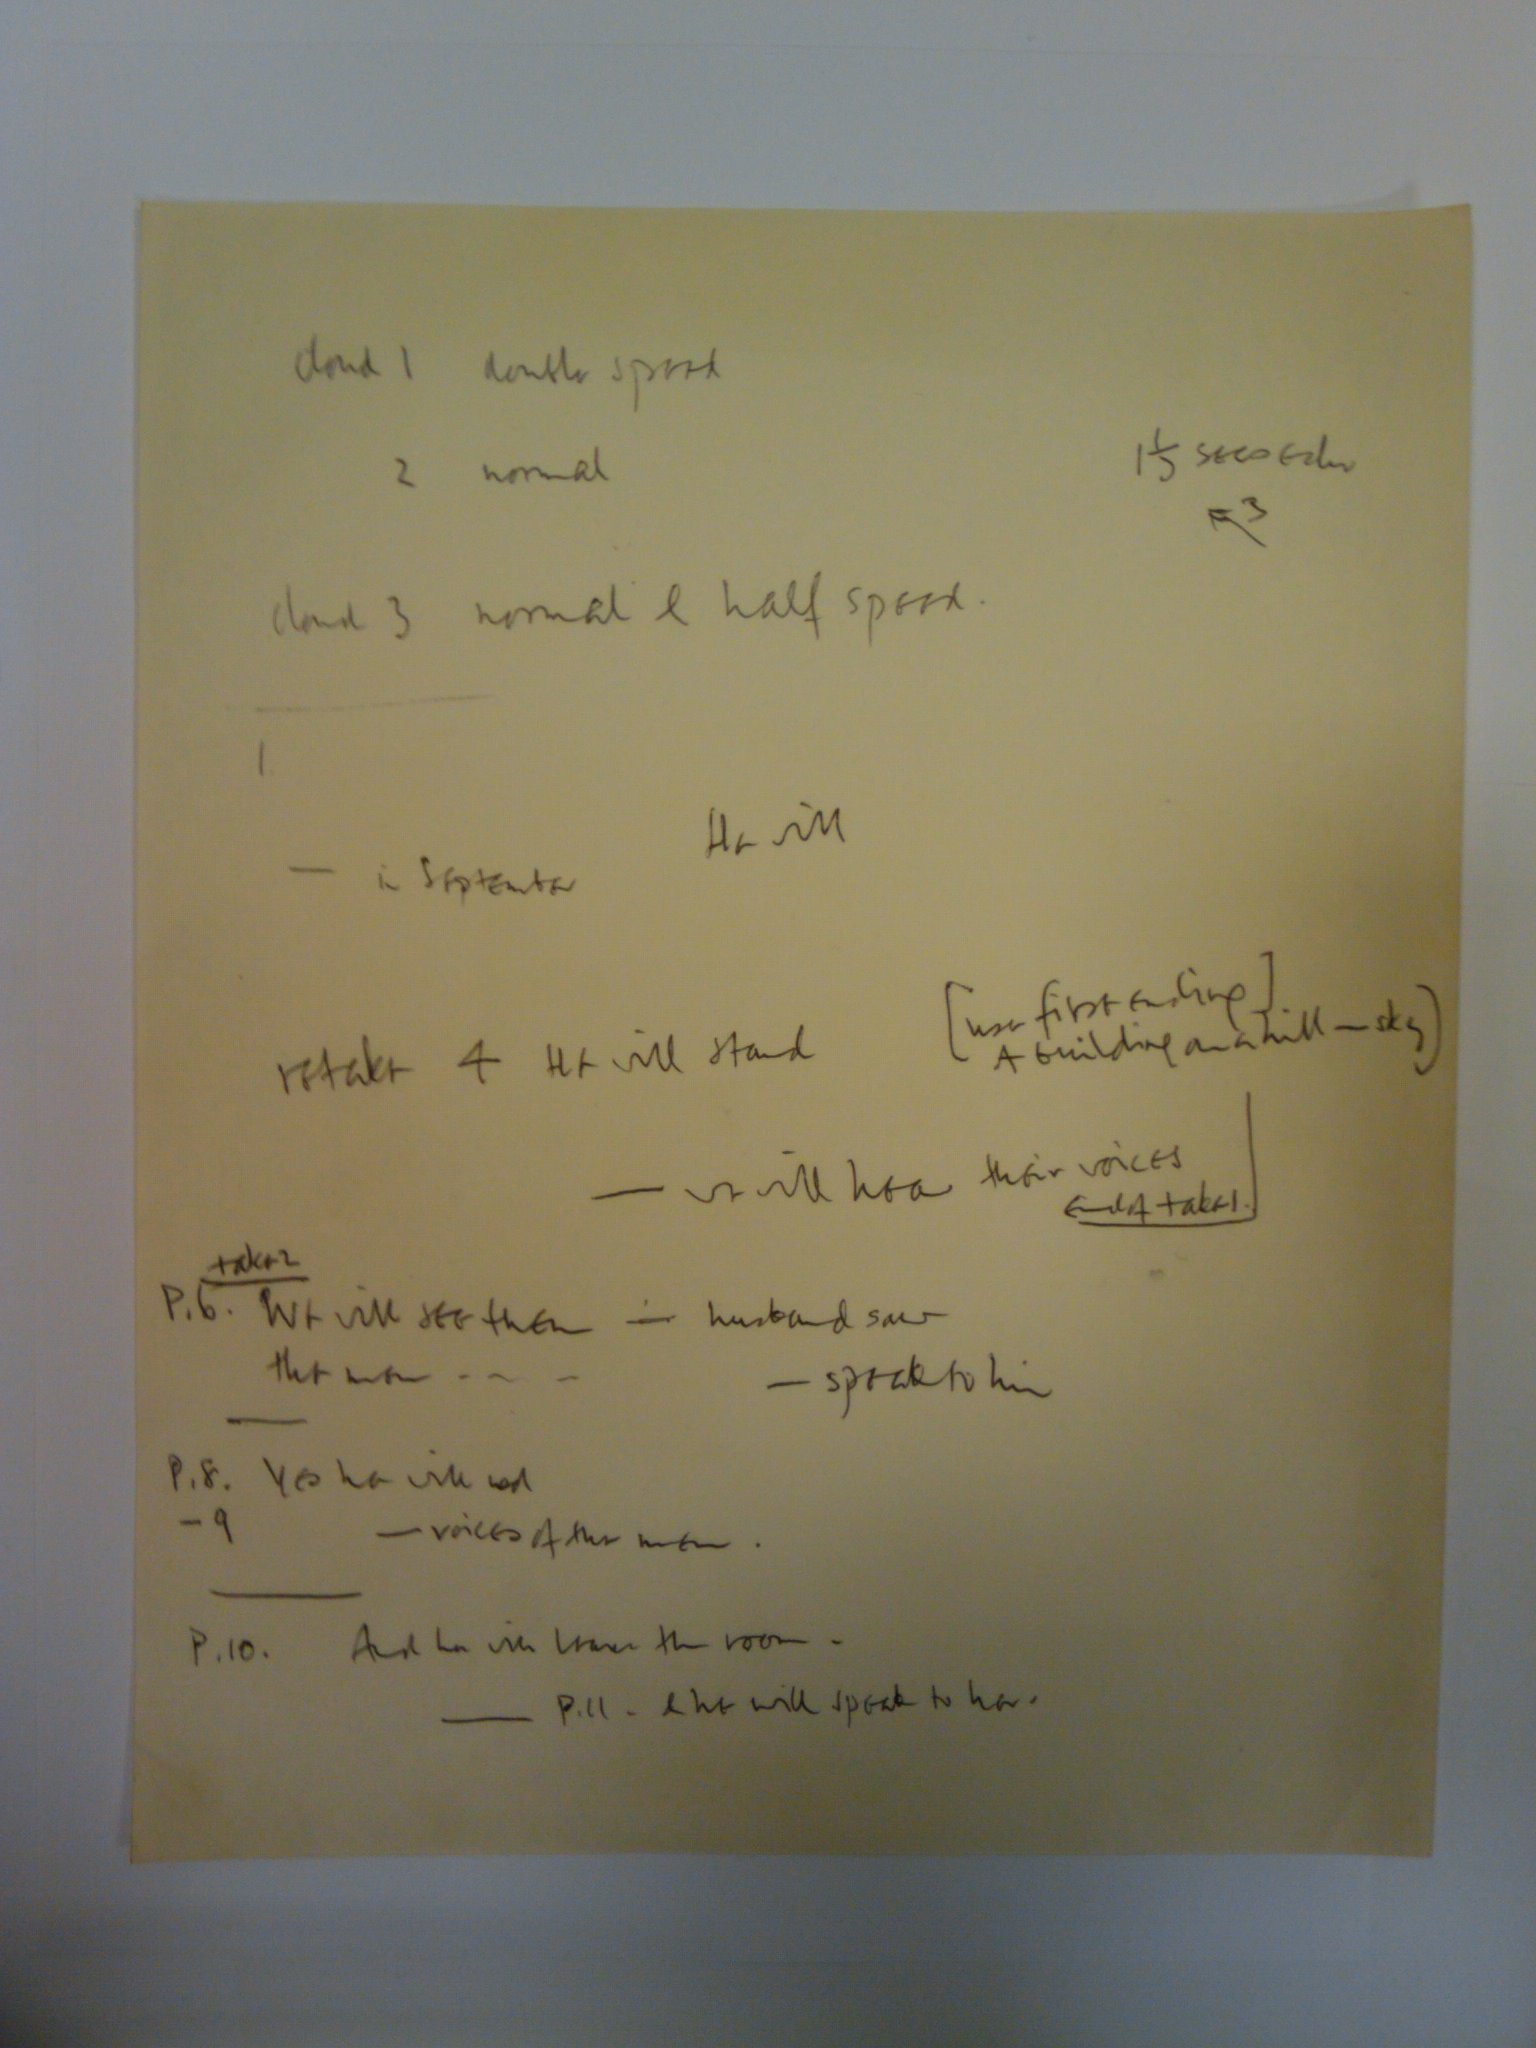 cloud 1 double speed
2 normal
1 1/5 seconds
3
cloud 3 normal & half speed.
1
He will
— in September
[use first ending]
retake 4 He will stand
A building on a hill — sky)
— we will hear their voices
end of take 1.
take 2
P.6. We will see them — husband saw
the men - - -
— speak to him
P.8. Yes he will
- 9 — voices of the men.
P.10. And he will leave the room -
— P.11 - & he will speak to her.